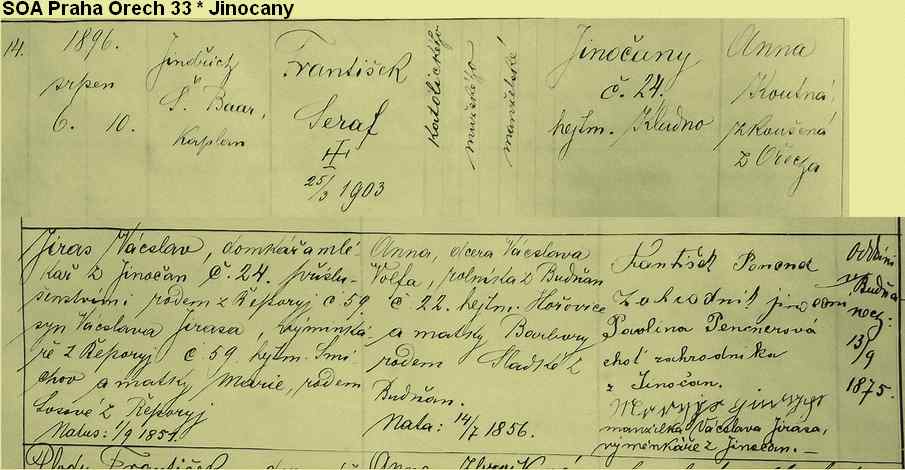 SOA Praha Orech 33 * Jinocany
14.
1896.
srpen
6. 10.
Jindřich
Š. Baar,
kaplan
František
Seraf
25/3 1903
katolického
mužského
manželské
Jinočany
č. 24.
hejtm. Kladno
Anna
Koutná,
zkoušená
z Ořecha
Jiras Václav, domkář a mlé-
kař z Jinočan č. 24. příslu-
šenstvím i rodem z Řeporyj č 59
syn Václava Jirasa výminká
ře z Řeporyj č. 59. hejtm. Smí
chov a matky Marie, rodem
z Řeporyj
Natus: 1/9 1851.
Anna, dcera Václava
Volfa, rolníka z Budňan
č 22. hejtm. Hořovice
a matky Barbory
rodem Sladké z
Budňan.
Nata: 14/7 1856.
František
zahradník
Pavlina
choť zahradníka
z Jinočan.
manželka Václava Jirasa,
výměnkáře z Jinočan.
Oddáni
v Budňa-
nech:
13/9
1875.